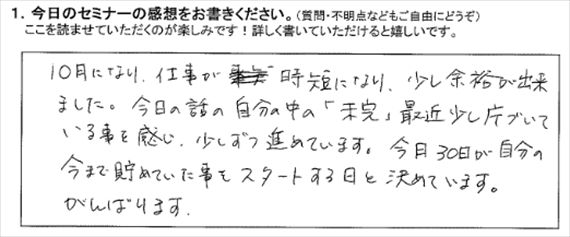 1. 今日のセミナーの感想をお書きください。(質問・不明点などもご自由にどうぞ)
ここを読ませていただくのが楽しみです！詳しく書いていただけると嬉しいです。
10月になり、仕事が 時短になり、少し余裕が出来
ました。今日の話の自分の中の「未完」最近少し片づいて
いる事を感じ、少しずつ進めています。今月30日が自分の
今まで貯めていた事をスタートする日と決めています。
がんばります。